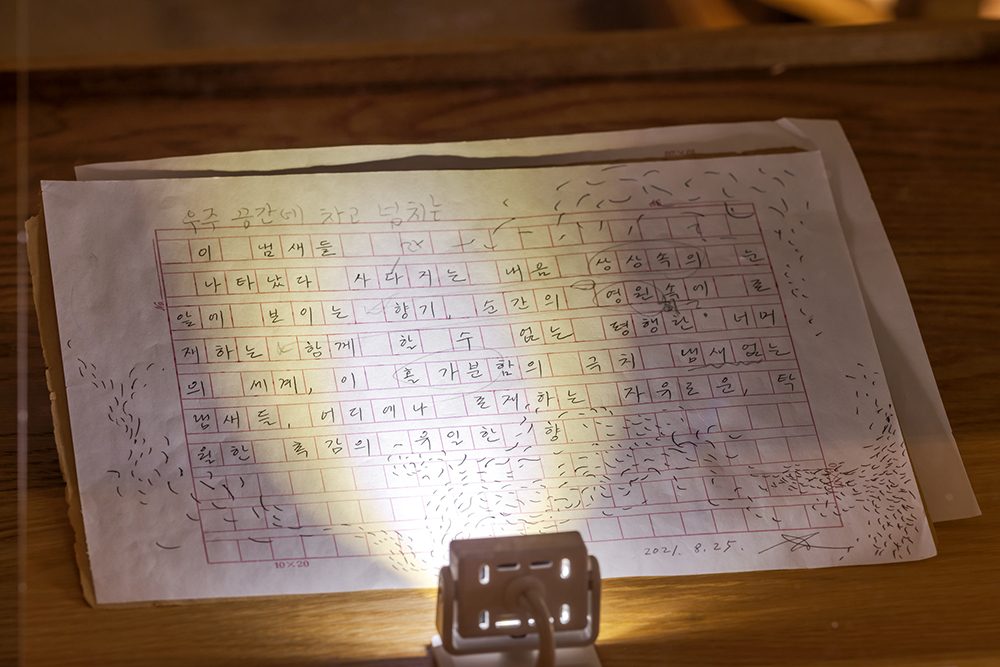 우주 공간에 차고 넘치는
이 냄새들
나타났다 사다지는 내음 상상속의 눈
앞에 보이는 향기, 순간의 영원속에 존
재하는 함께 할 수 없는 평행한 너머
의 세계, 이 홀가분함의 극치 냄새 없는
냄새들, 어디에나 존재하는 자유로운, 탁
월한 촉감의 유일한 향
10×20
2021. 8. 25.